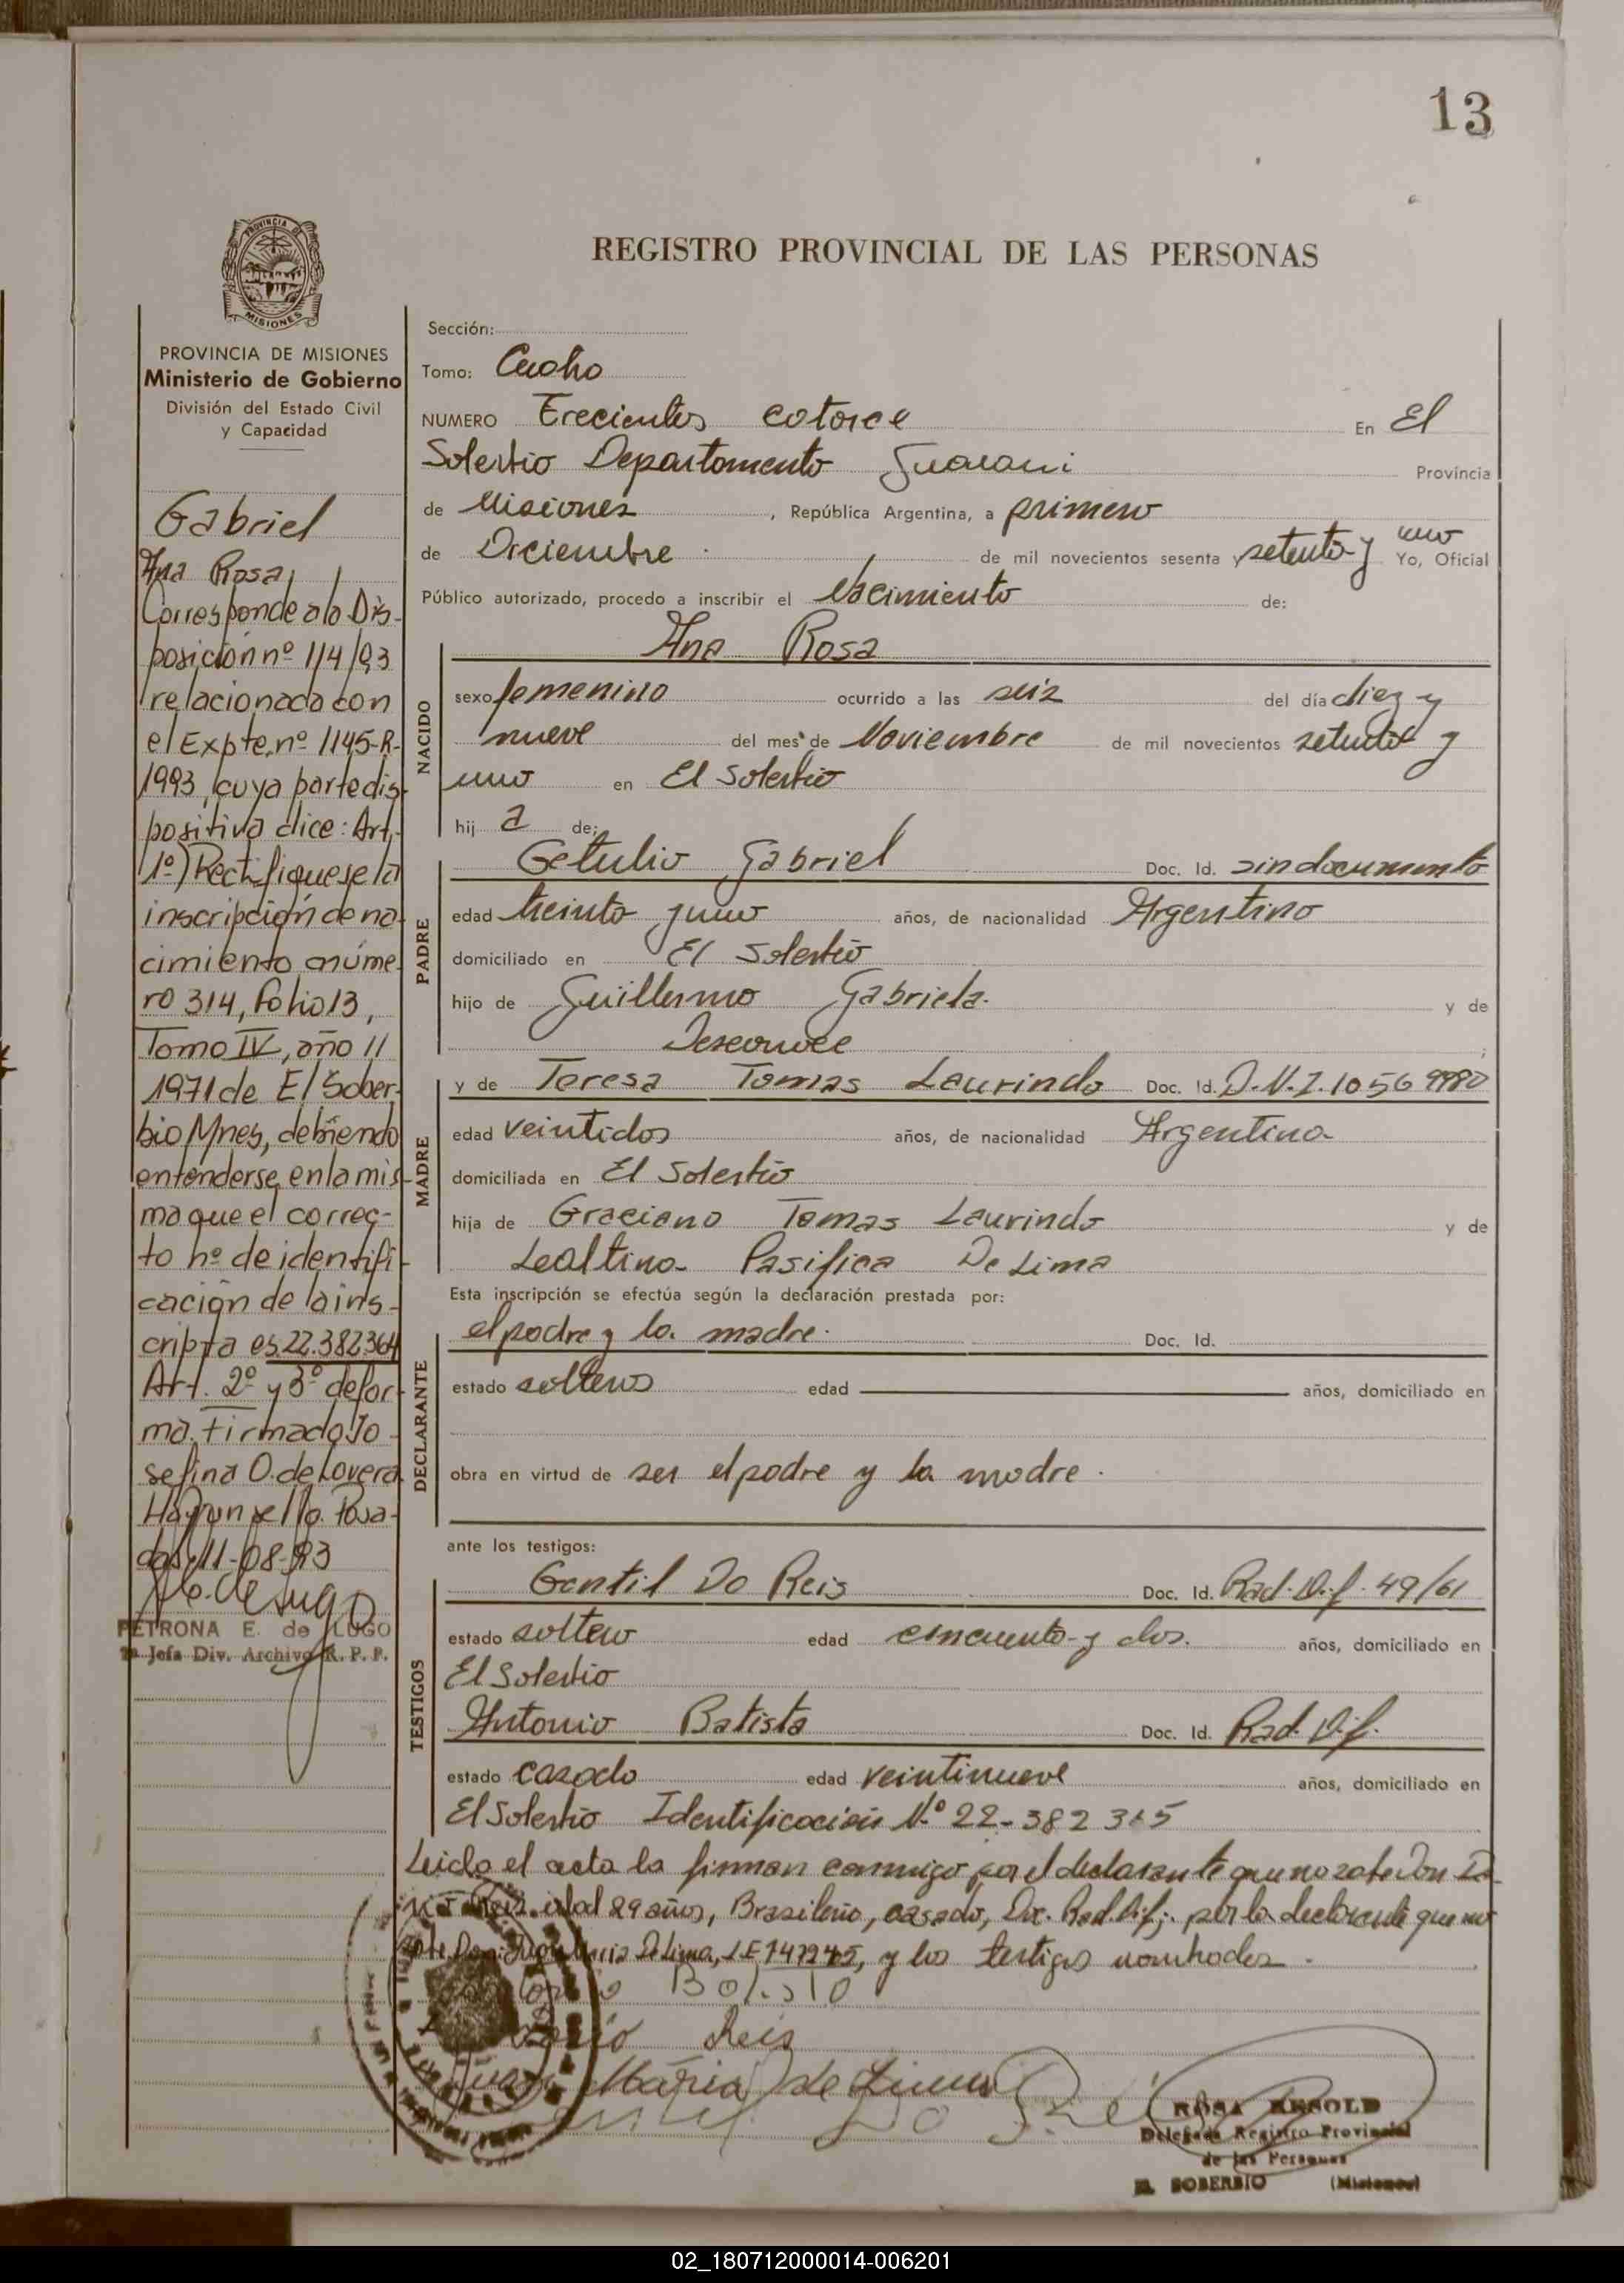 13
REGISTRO PROVINCIAL DE LAS PERSONAS
PROVINCIA DE
MISIONES
PROVINCIA DE MISIONES
Ministerio de Gobierno
División del Estado Civil
y Capacidad
Gabriel
Ana Rosa
Corresponde a la Dis-
posición nº 114/93
relacionada con
el Expte. nº 1145-R-
1993, cuya parte dis-
positiva dice: Art.
1º) Rectifiquese la
inscripción de na-
cimiento número
ro 314, folio 13,
Tomo IV, año
1971 de El Sober-
bio Mnes, debiendo
entenderse en la mis-
ma que el correc-
to nº de identifi-
cación de la ins-
cripta es 22.382.364
Art. 2º y 3º de for-
ma. firmado Jo-
sefina O. de Lovera
Hay un sello. Posa-
das, 11-08-93
PETRONA E. de LUGO
Jefa Div. Archivo R. P. P.
Sección:
Tomo: Cuatro
NUMERO Trecientos catorce En El
Soberbio Departamento Guarani Provincia
de Misiones, República Argentina, a primero
de Diciembre de mil novecientos sesenta y setenta y uno Yo, Oficial
Público autorizado, procedo a inscribir el Nacimiento de:
Ana Rosa
NACIDO
sexo femenino ocurrido a las seis del día diez y
nueve del mes de Noviembre de mil novecientos setenta y
uno en El Soberbio
hij a de:
PADRE
Getulio Gabriel Doc. Id. sin documento
edad treinta y uno años, de nacionalidad Argentino
domiciliado en El Soberbio
hijo de Guillermo Gabriela y de
Desconoce
MADRE
y de Teresa Tomas Laurindo Doc. Id. D.N.I. 1056 9980
edad veintidos años, de nacionalidad Argentina
domiciliada en El Soberbio
hija de Graciano Tomas Laurindo y de
Lealtina Pasifica De Lima
Esta inscripción se efectúa según la declaración prestada por:
DECLARANTE
el padre y la madre. Doc. Id.
estado solteros edad años, domiciliado en
obra en virtud de ser el padre y la madre.
ante los testigos:
TESTIGOS
Gentil Do Reis Doc. Id. Rad. Dif. 49/61
estado soltero edad cincuenta y dos. años, domiciliado en
El Soberbio
Antonio Batista Doc. Id. Rad. Dif.
estado casado edad veintinueve años, domiciliado en
El Soberbio Identificación Nº 22-382 365
Leida el acta la firman conmigo por el declarante que no sabe Don
Reis edad 29 años, Brasileño, casado, Doc. Rad. Dif; por la declarante que no
Don: Maria De Lima, LE 747245, y los testigos nombrados.
Reis
Juan Maria de Lima
Do Rei
ROSA
Delegada Registro Provincial
de las Personas
EL SOBERBIO (Misiones)
02_180712000014-006201